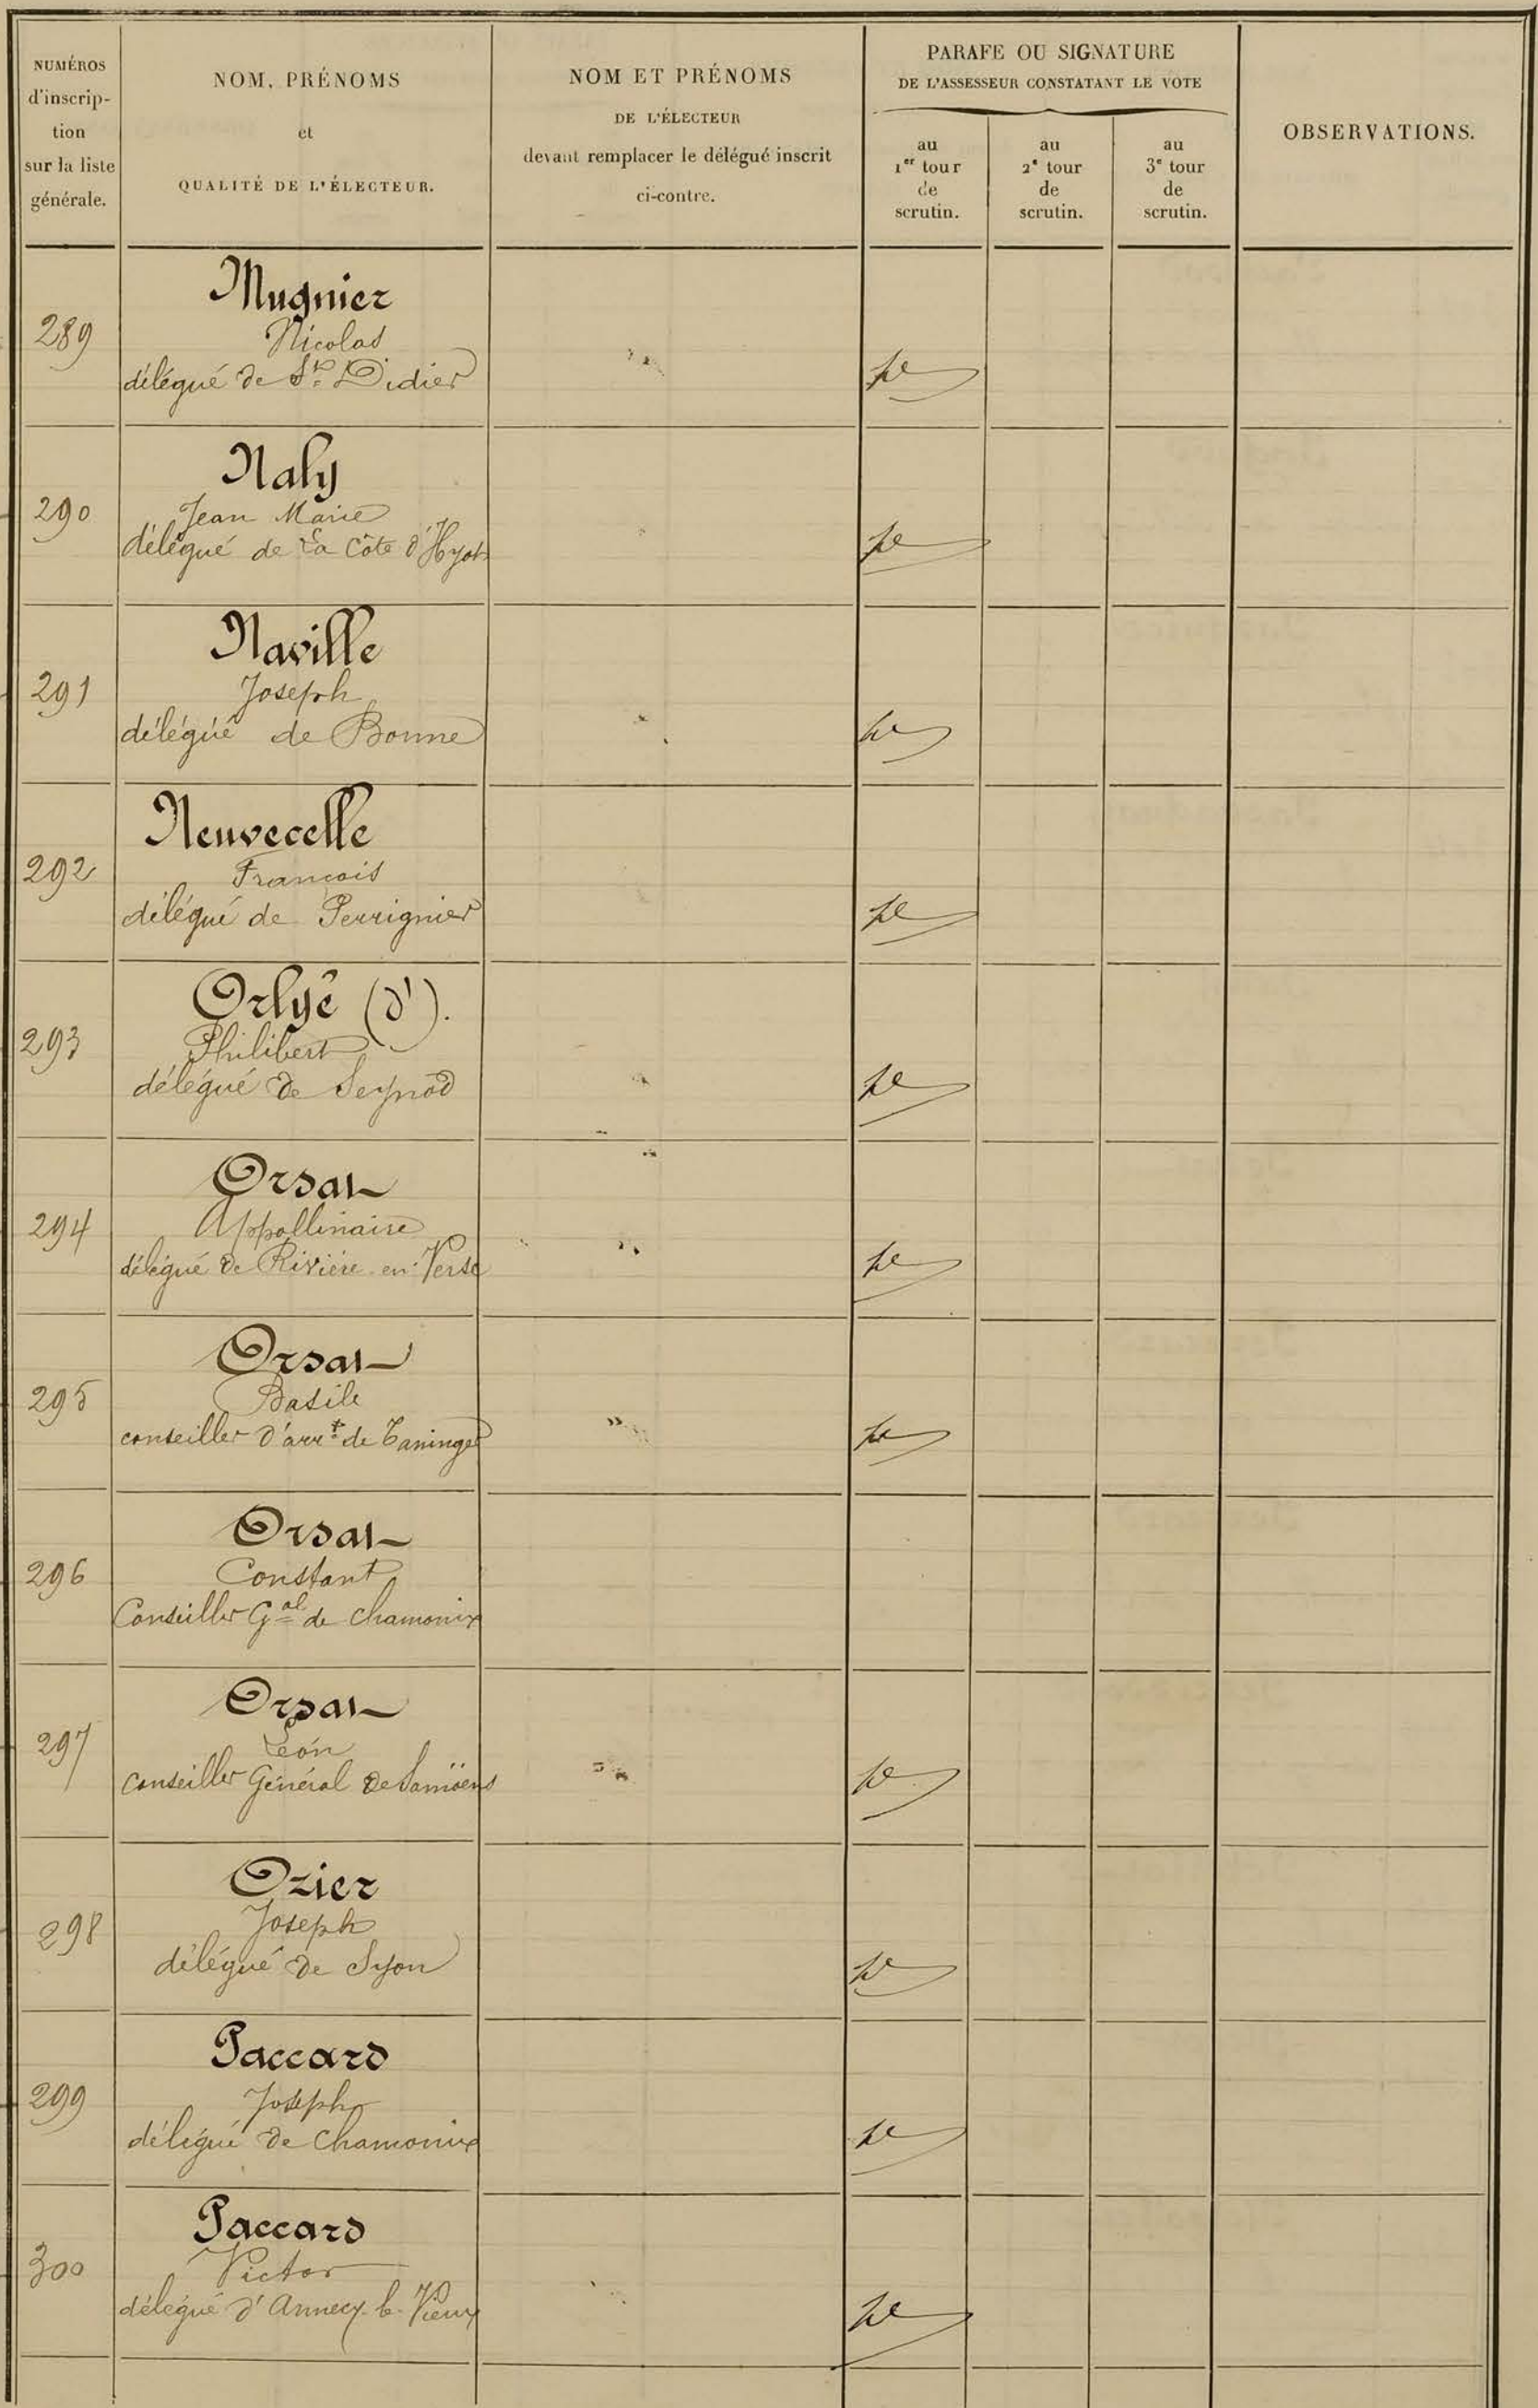 NUMÉROS
d'inscrip-
tion
sur la liste
générale.
NOM, PRÉNOMS
et
QUALITÉ DE L'ÉLECTEUR.
NOM ET PRÉNOMS
DE L'ÉLECTEUR
devant remplacer le délégué inscrit
ci-contre.
PARAFE OU SIGNATURE
DE L'ASSESSEUR CONSTATANT LE VOTE
au
1er tour
de
scrutin.
au
2e tour
de
scrutin.
au
3e tour
de
scrutin.
OBSERVATIONS.
289
Mugnier
Nicolas
délégué de St Didier
290
Naly
Jean Marie
délégué de La Côte d'Hyot
291
Naville
Joseph
délégué de Bonne
292
Neuvecelle
François
délégué de Perrignier
293
Orlyé (d').
Philibert
délégué de Seynod
294
Orsat
Appollinaire
délégué de Rivière-en-Verse
295
Orsat
Basile
conseiller d'arrt de Taninges
296
Orsat
Constant
Conseiller Gal de Chamonix
297
Orsat
Léon
Conseiller Général de Samöens
298
Ozier
Joseph
délégué de Syon
299
Paccard
Joseph
délégué de Chamonix
300
Paccard
Victor
délégué d'Annecy-le-Vieux